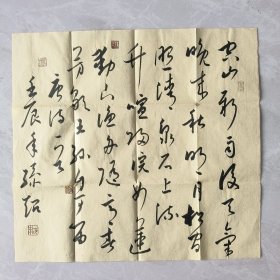 空山新雨后天气
晚来秋明月松间
照清泉石上流
竹喧归浣女莲
动下渔舟随意春
芳歇王孙自可留
唐诗一首
壬辰年